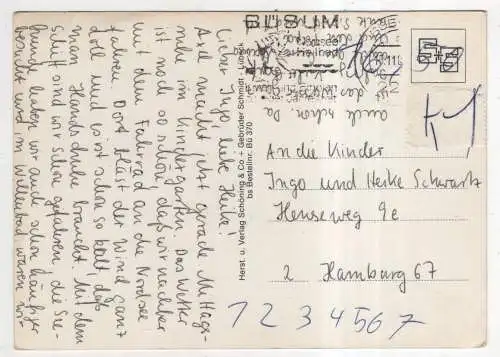 Lieber Ingo, liebe Heike!
Axel macht jetzt gerade Mittags-
ruhe im Kindergarten. Das Wetter
ist noch so schön, daß wir nachher
mit dem Fahrrad an die Nordsee
fahren. Dort bläst der Wind ganz
doll und es ist schon so kalt, daß
man Handschuhe braucht. Mit dem
Schiff sind wir schon gefahren, die See-
hunde haben wir auch schon häufiger
besucht und im Wellenbad waren wir
auch schon. Da
ist das
Herst. u. Verlag Schöning & Co + Gebrüder Schmidt · Lübeck
bs Bestellnr. Bü 370
BÜSUM
An die Kinder
Ingo und Heike Schwartz
Henseweg 9e
2 Hamburg 67
1 2 3 4 5 6 7